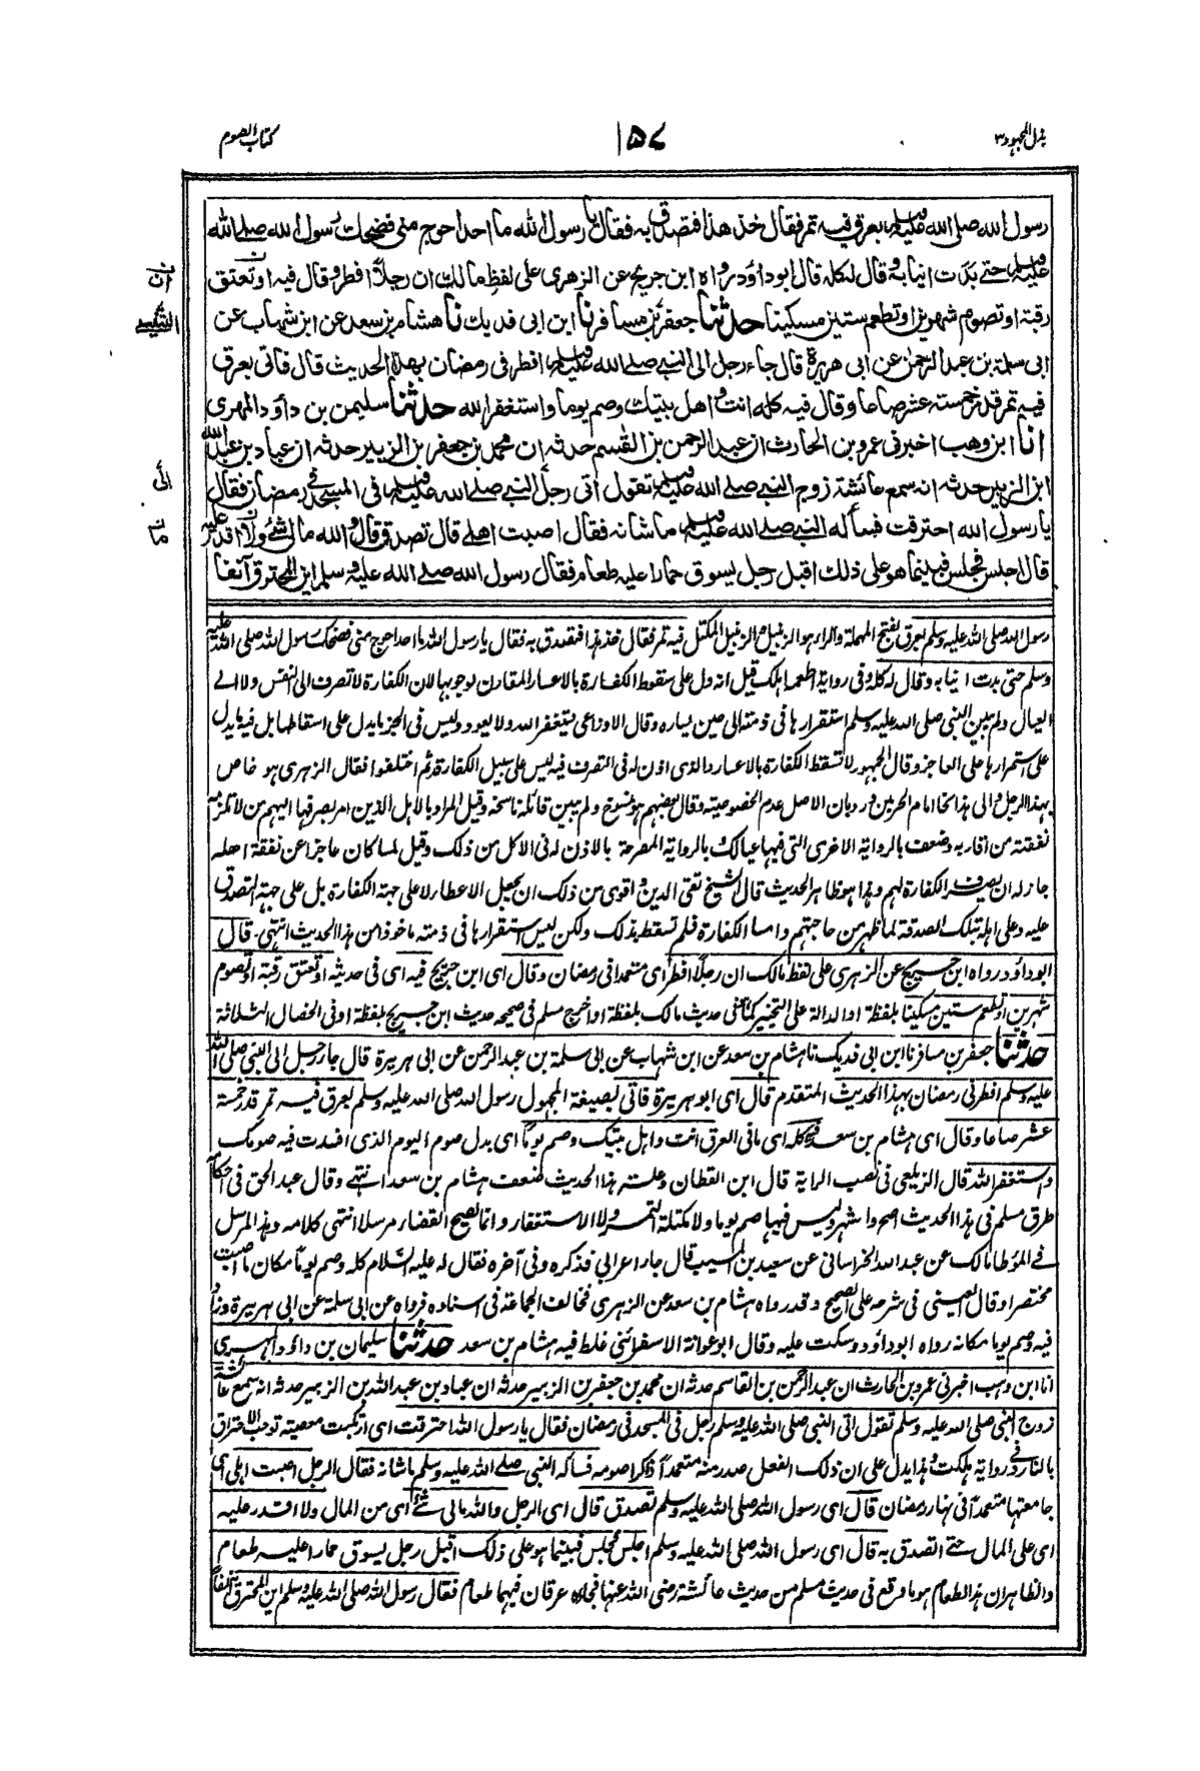 بذل المجهود ٣
١٥٧
كتاب الصوم
رسول الله صلى الله عليه وسلم بعرق فيه تمر فقال خذ هذا فتصدق به فقال يا رسول الله ما احد احوج منى فضحك رسول الله صلى الله
عليه وسلم حتى بدت انيابه وقال له كله قال ابوداؤد رواه ابن جريج عن الزهرى على لفظ مالك ان رجلا افطر وقال فيه او تعتق
رقبة او تصوم شهرين او تطعم ستين مسكينا حدثنا جعفر بن مسافر نا ابن ابى فديك نا هشام بن سعد عن ابن شهاب عن
ابى سلمة بن عبد الرحمن عن ابى هريرة قال جاء رجل الى النبى صلى الله عليه وسلم افطر فى رمضان بهذا الحديث قال فاتى بعرق
فيه تمر قدر خمسة عشر صاعا وقال فيه كله انت و اهل بيتك وصم يوما واستغفر الله حدثنا سليمن بن داؤد المهرى
انا ابن وهب اخبرنى عمرو بن الحارث ان عبد الرحمن بن القسم حدثه ان محمد بن جعفر بن الزبير حدثه ان عباد بن عبد الله
ابن الزبير حدثه انه سمع عائشة زوج النبى صلى الله عليه وسلم تقول اتى رجل النبى صلى الله عليه وسلم فى المسجد فى رمضان فقال
يا رسول الله احترقت فسأله النبى صلى الله عليه وسلم ما شانه فقال اصبت اهلى قال تصدق قال والله مالى شئ ولا اقدر عليه
قال اجلس فجلس فبينما هو على ذلك اقبل رجل يسوق حمارا عليه طعام فقال رسول الله صلى الله عليه وسلم اين المحترق آنفا
ان
الى
ما
رسول الله صلى الله عليه وسلم بعرق بفتح المهملة والراء هو الزنبيل المكتل فيه تمر فقال خذ هذا فتصدق به فقال يا رسول الله ما احد احوج منى فضحك رسول الله صلى الله عليه
وسلم حتى بدت انيابه وقال له كله وفى رواية اطعمه اهلك قيل انه دل على سقوط الكفارة بالاعسار المقارن لوجوبها لان الكفارة لا تصرف الى النفس ولا الى
العيال ولم يبين النبى صلى الله عليه وسلم استقرارها فى ذمته الى حين يساره وقال الاوزاعى يستغفر الله ولا يعود وليس فى الخبر ما يدل على اسقاطها بل فيه ما يدل
على استمرارها على العاجز وقال الجمهور لا تسقط الكفارة بالاعسار والذى اذن له فى التصرف فيه ليس على سبيل الكفارة ثم اختلفوا فقال الزهرى هو خاص
بهذا الرجل والى هذا نحا امام الحرمين ورد بان الاصل عدم الخصوصية وقال بعضهم هو منسوخ ولم يبين قائله ناسخه وقيل المراد بالاهل الذين امر بصرفها اليهم من لا تلزمه
نفقته من اقاربه وضعف بالرواية الاخرى التى فيها عيالك وبالرواية المصرحة بالاذن له فى الاكل من ذلك وقيل لما كان عاجزا عن نفقة اهله
جاز له ان يصرف الكفارة لهم وهذا هو ظاهر الحديث قال الشيخ تقى الدين و اقوى من ذلك ان يجعل الاعطاء لا على جهة الكفارة بل على جهة التصدق
عليه وعلى اهله بتلك الصدقة لما ظهر من حاجتهم واما الكفارة فلم تسقط بذلك ولكن ليس استقرارها فى ذمته ماخوذا من هذا الحديث انتهى قال
ابو داؤد رواه ابن جريج عن الزهرى على لفظ مالك ان رجلا افطر اى متعمدا فى رمضان وقال اى ابن جريج فيه اى فى حديثه او تعتق رقبة او تصوم
شهرين او تطعم ستين مسكينا بلفظة او الدالة على التخيير كما فى حديث مالك بلفظة او اخرج مسلم فى صحيحه حديث ابن جريج بلفظة او فى الخصال الثلاثة
حدثنا جعفر بن مسافر نا ابن ابى فديك نا هشام بن سعد عن ابن شهاب عن ابى سلمة بن عبد الرحمن عن ابى هريرة قال جاء رجل الى النبى صلى الله
عليه وسلم افطر فى رمضان بهذا الحديث المتقدم قال اى ابو هريرة فاتى بصيغة المجهول رسول الله صلى الله عليه وسلم بعرق فيه تمر قدر خمسة
عشر صاعا وقال اى هشام بن سعد فيه كله اى ما فى العرق انت واهل بيتك وصم يوما اى بدل صوم اليوم الذى افسدت فيه صومك
واستغفر الله قال الزيلعى فى نصب الراية قال ابن القطان وعلة هذا الحديث ضعف هشام بن سعد انتهى وقال عبد الحق فى احكامه
طرق مسلم فى هذا الحديث اصح واشهر وليس فيها صم يوما ولا مكتلة التمر ولا الاستغفار وانما يصح القضاء مرسلا انتهى كلامه وهذا المرسل
فى المؤطا مالك عن عبد الله الخراسانى عن سعيد بن المسيب قال جاء اعرابى فذكره وفى آخره فقال له عليه السلام كله وصم يوما مكان ما اصبت
مختصرا وقال العينى فى شرحه على الصحيح وقد رواه هشام بن سعد عن الزهرى فخالف الجماعة فى اسناده فرواه عن ابى سلمة عن ابى هريرة وزاد
فيه وصم يوما مكانه رواه ابوداؤد وسكت عليه وقال ابو عوانة الاسفرائنى غلط فيه هشام بن سعد حدثنا سليمان بن داؤد المهرى
انا ابن وهب اخبرنى عمرو بن الحارث ان عبد الرحمن بن القاسم حدثه ان محمد بن جعفر بن الزبير حدثه ان عباد بن عبد الله بن الزبير حدثه انه سمع عائشة
زوج النبى صلى الله عليه وسلم تقول اتى النبى صلى الله عليه وسلم رجل فى المسجد فى رمضان فقال يا رسول الله احترقت اى ارتكبت معصية توجب الاحتراق
بالنار وفى رواية هلكت وهذا يدل على ان ذلك الفعل صدر منه متعمدا ذاكرا صومه فسأله النبى صلى الله عليه وسلم ما شانه فقال الرجل اصبت اهلى اى
جامعتها متعمدا فى نهار رمضان قال اى رسول الله صلى الله عليه وسلم تصدق قال اى الرجل والله مالى شئ اى من المال ولا اقدر عليه
اى على المال حتى اتصدق به قال اى رسول الله صلى الله عليه وسلم اجلس فجلس فبينما هو على ذلك اقبل رجل يسوق حمارا عليه طعام
والظاهر ان هذا الطعام هو ما وقع فى حديث مسلم من حديث عائشة رضى الله عنها فجاءه عرقان فيهما طعام فقال رسول الله صلى الله عليه وسلم اين المحترق آنفا